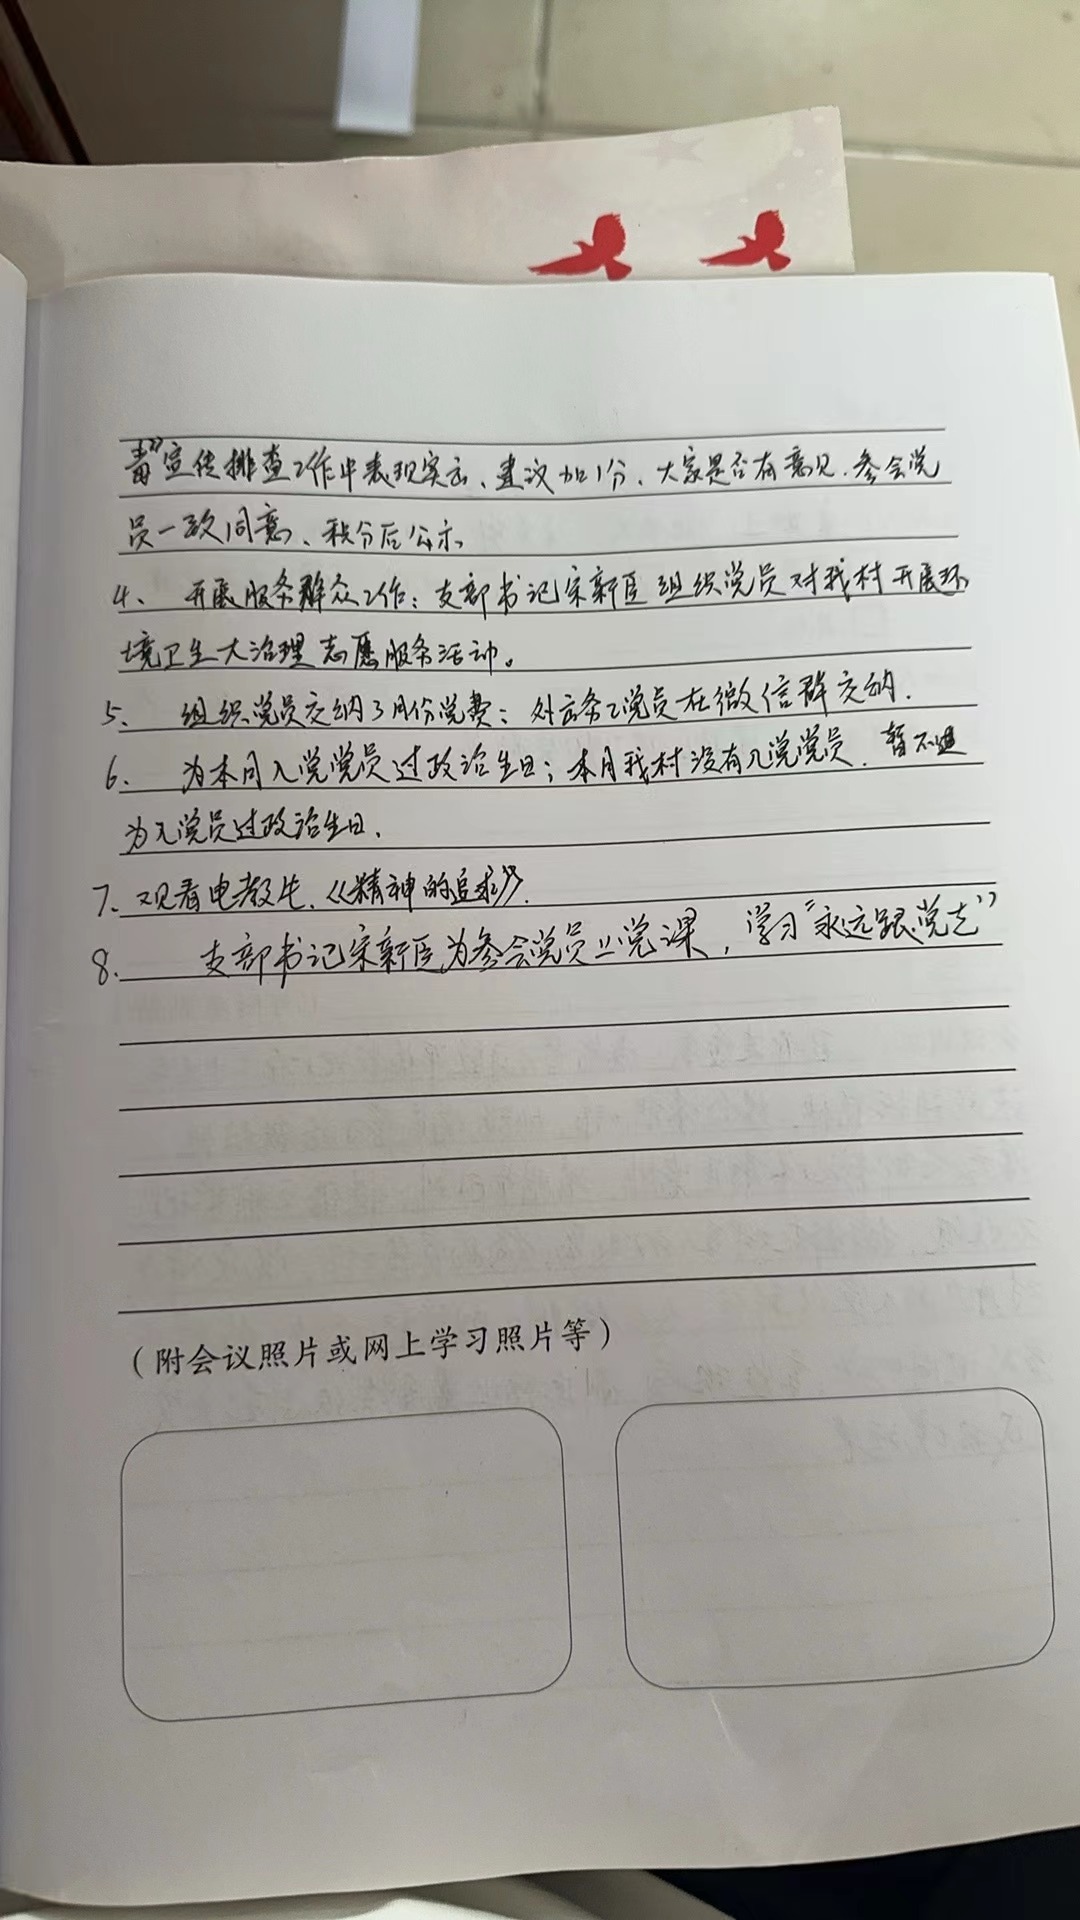 毒”宣传排查工作中表现突出、建议加1分、大家是否有意见.参会党
员一致同意、积分后公示
4、 开展服务群众工作：支部书记宋新臣组织党员对我村开展环
境卫生大治理志愿服务活动。
5、 组织党员交纳3月份党费：外出务工党员在微信群交纳.
6、 为本月入党党员过政治生日；本月我村没有入党党员.暂不
为党员过政治生日、
7、观看电教片、《精神的追求》.
8、 支部书记宋新臣为参会党员上党课，学习“永远跟党走”
（附会议照片或网上学习照片等）